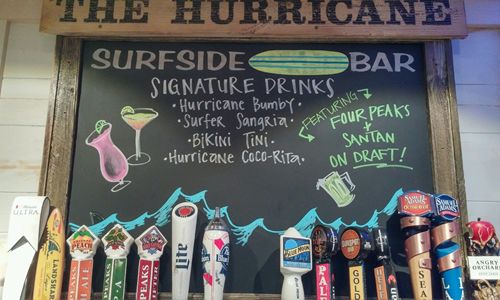 THE HURRICANE
SURFSIDE BAR
SIGNATURE DRINKS
• Hurricane Bumby •
• Surfer Sangria •
• BiKiNi TiNi •
• Hurricane Coco-Rita •
FEATURING
FOUR PEAKS
+
SANTAN
ON DRAFT!
ULTRA
LANDSHARK
PEACH
ALE
PEAKS
PEAKS
Lite
BLUE MOON
PALE
GOLD
SAMUEL ADAMS
SAMUEL ADAMS
SEA
ANGRY
ORCHARD